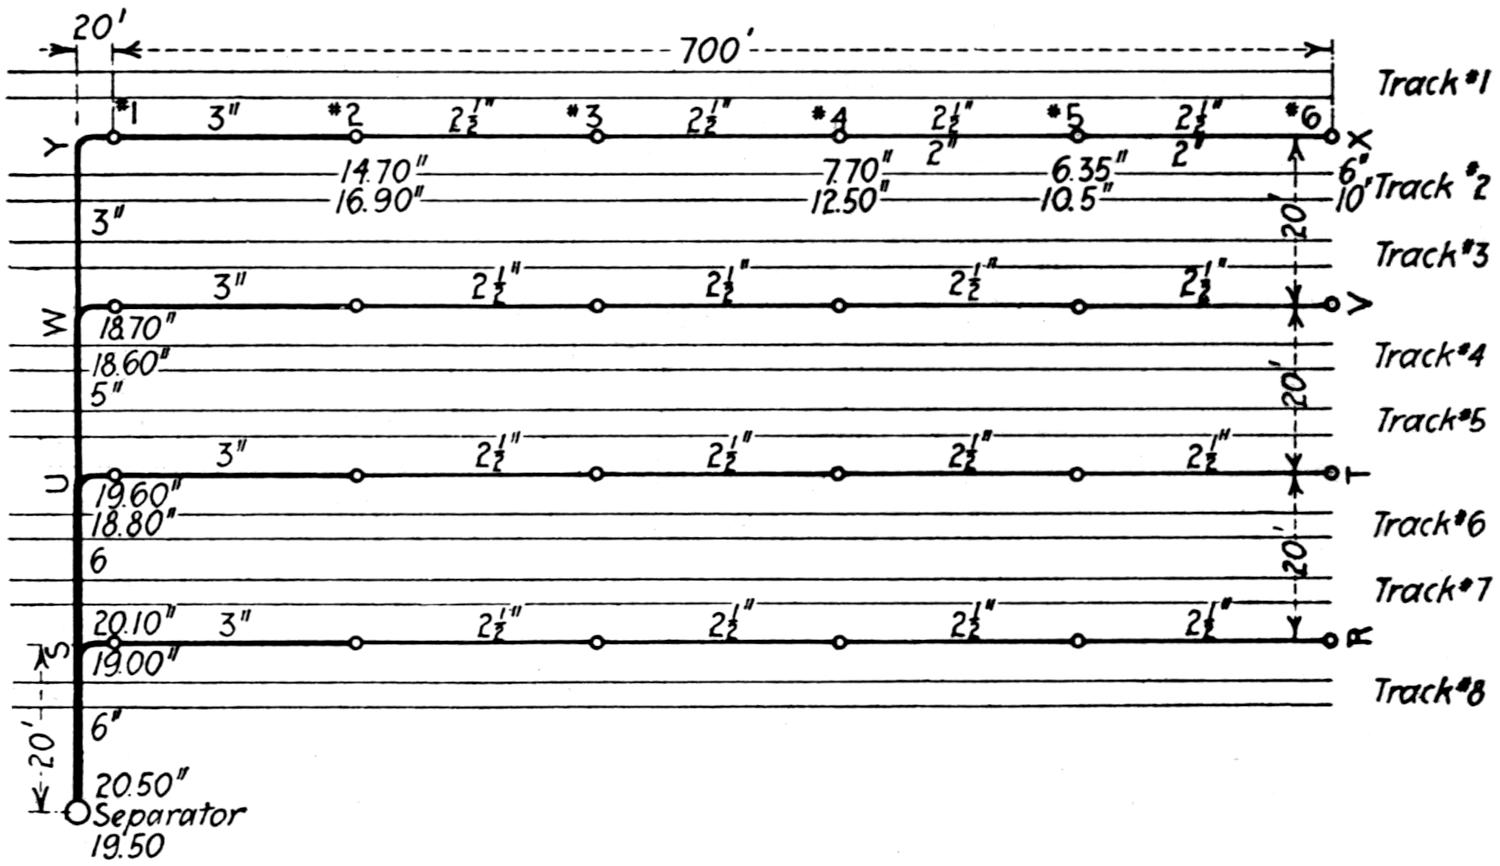 20'
700'
Track #1
#1 3" #2 2½" #3 2½" #4 2½" #5 2½" #6
Y X
2" 2"
14.70" 7.70" 6.35" 6"
16.90" 12.50" 10.5" 10"
Track #2
3"
20'
Track #3
3" 2½" 2½" 2½" 2½"
W V
18.70"
18.60"
Track #4
5"
20'
Track #5
3" 2½" 2½" 2½" 2½"
U T
19.60"
18.80"
Track #6
6
20'
Track #7
20.10" 3" 2½" 2½" 2½" 2½"
S R
19.00"
Track #8
6"
20'
20.50"
Separator
19.50